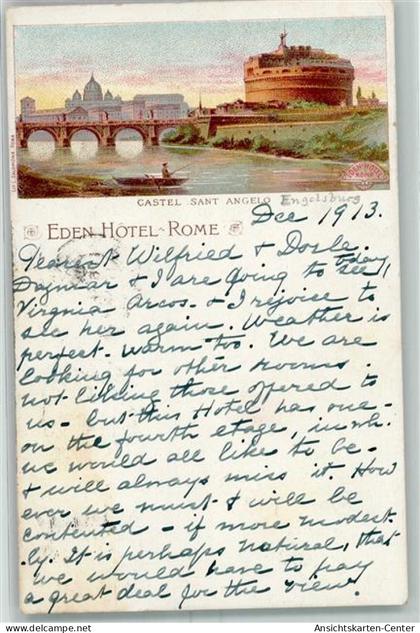 CASTEL SANT ANGELO Engelsburg
EDEN HÔTEL-ROME
Dec 1913.
Dearest Wilfried & Dosle.
Dagmar & I are going to see, today
Virgnia Arcos. & I rejoice to
see her again. Weather is
perfect - warm too. We are
looking for other rooms.
not liking those offered to
us - but this Hotel has one -
on the fourth etage, in wh.
we would all like to be -
& will always miss it. How
ever we must & will be
contented - if more modest
-ly. It is perhaps natural, that
we would have to pay
a great deal for the view.
www.delcampe.net
Ansichtskarten-Center